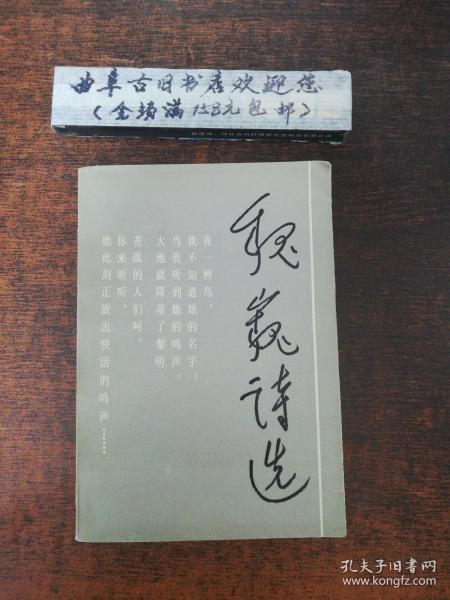 曲阜古旧书店欢迎您
(全场满158元包邮)
魏巍诗选
有一种鸟，
我不知道她的名字；
当我听到她的鸣声，
大地就降落了黎明。
苦战的人们呵，
你来听听，
她此刻正放出快活的鸣声……
孔夫子旧书网
www.kongfz.com